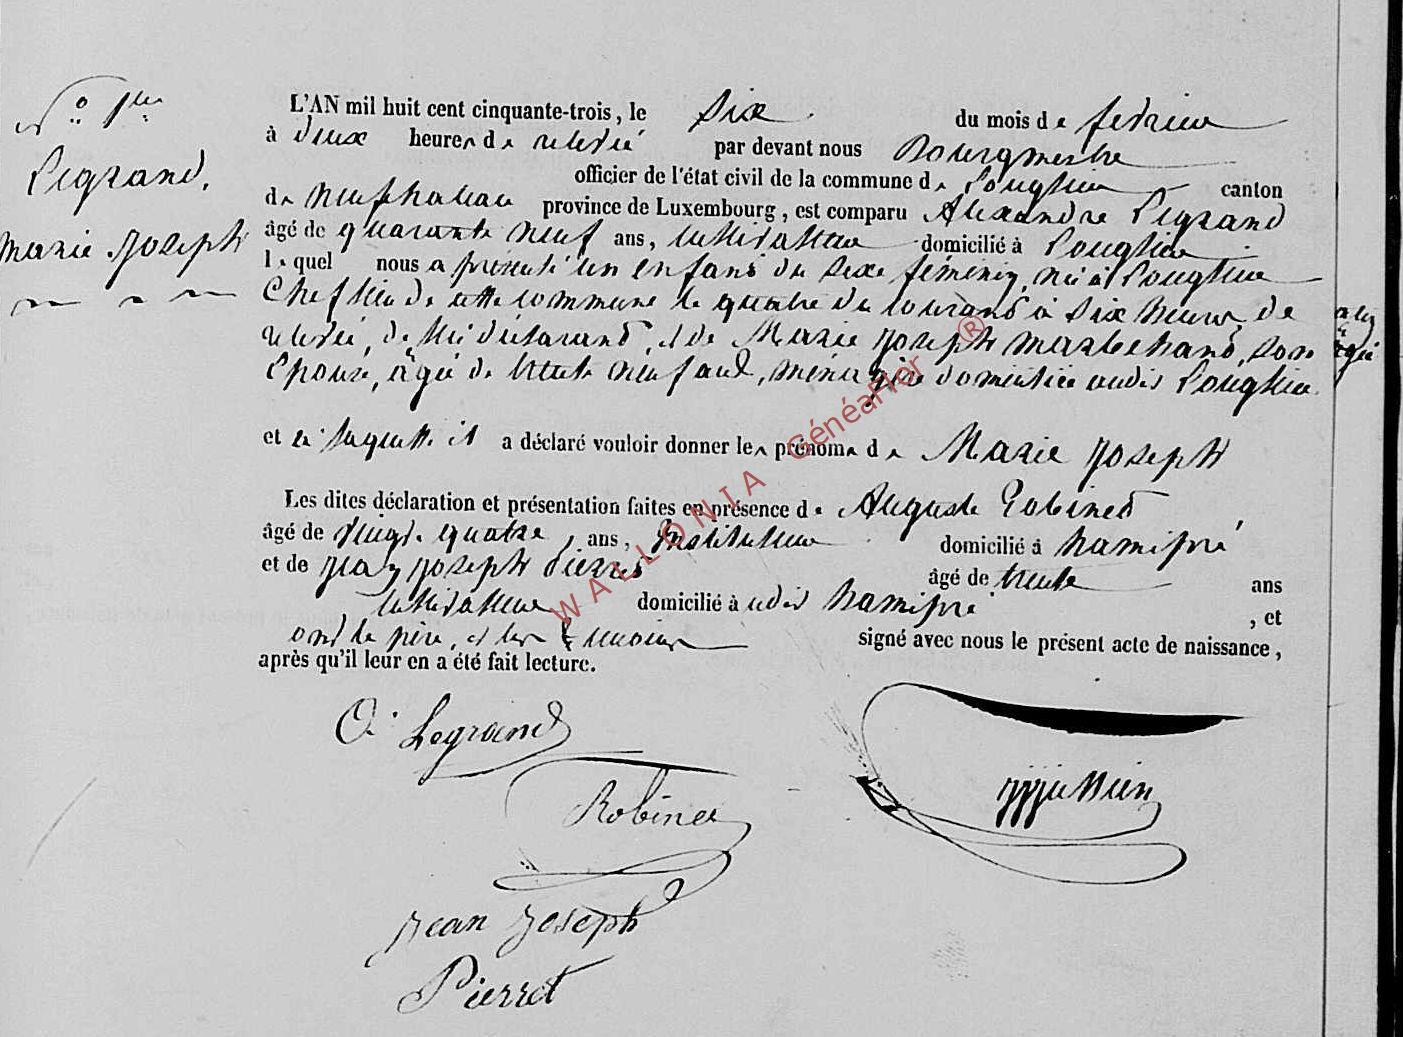 Legrand,
Marie Joseph
L'AN mil huit cent cinquante-trois, le six du mois de fevrier
à deux heures de relevée par devant nous Bourgmestre
officier de l'état civil de la commune de Longlier canton
de Neufchateau province de Luxembourg, est comparu Alexandre Legrand
âgé de quarante neuf ans, cultivateur domicilié à Longlier
lequel nous a présenté un enfant du sexe féminin, née à Longlier
Chef lieu de cette commune le quatre du courant à six heures de
relevée, de lui déclarant, et de Marie Joseph Marechand, son
Epouse, âgée de trente neuf ans, ménagère domiciliée audit Longlier
et à laquelle il a déclaré vouloir donner les prénoms de Marie Joseph
Les dites déclaration et présentation faites en présence de Auguste Robinet,
âgé de vingt quatre ans, Instituteur domicilié à hamipré
et de Jean Joseph Pierret âgé de trente ans
cultivateur domicilié à udit hamipré, et
ont le père, et les témoins signé avec nous le présent acte de naissance,
après qu'il leur en a été fait lecture.
A. Legrand
Robinet
Jean Joseph
Pierret
WALLONIA Généaflor ®